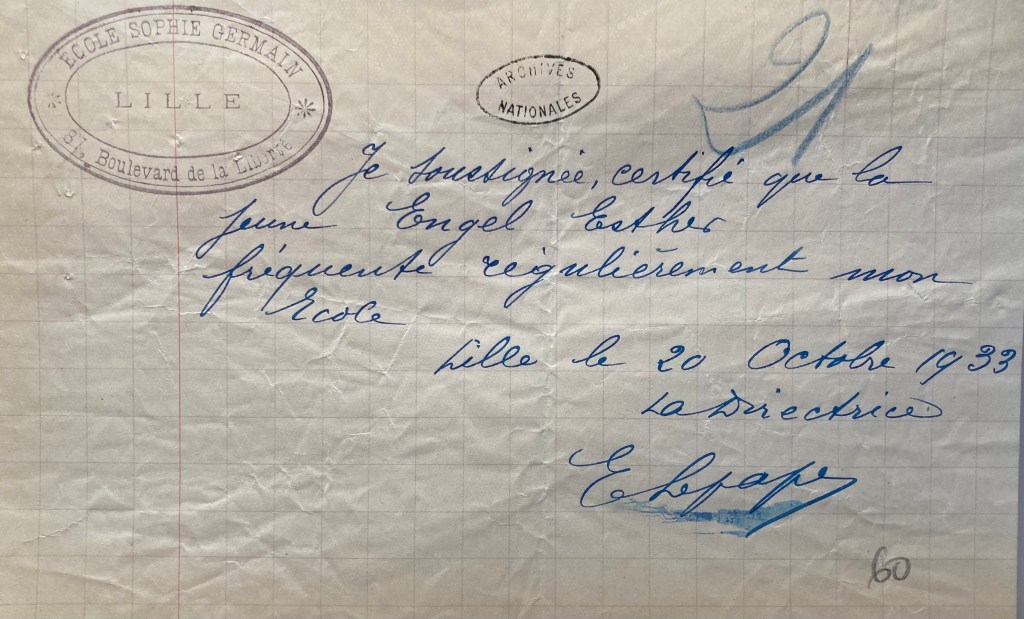 ÉCOLE SOPHIE GERMAIN
LILLE
81, Boulevard de la Liberté
ARCHIVES
NATIONALES
21
Je soussignée, certifie que la
jeune Engel Esther
fréquente régulièrement mon
Ecole
Lille le 20 Octobre 1933
La Directrice
E Lepape
60